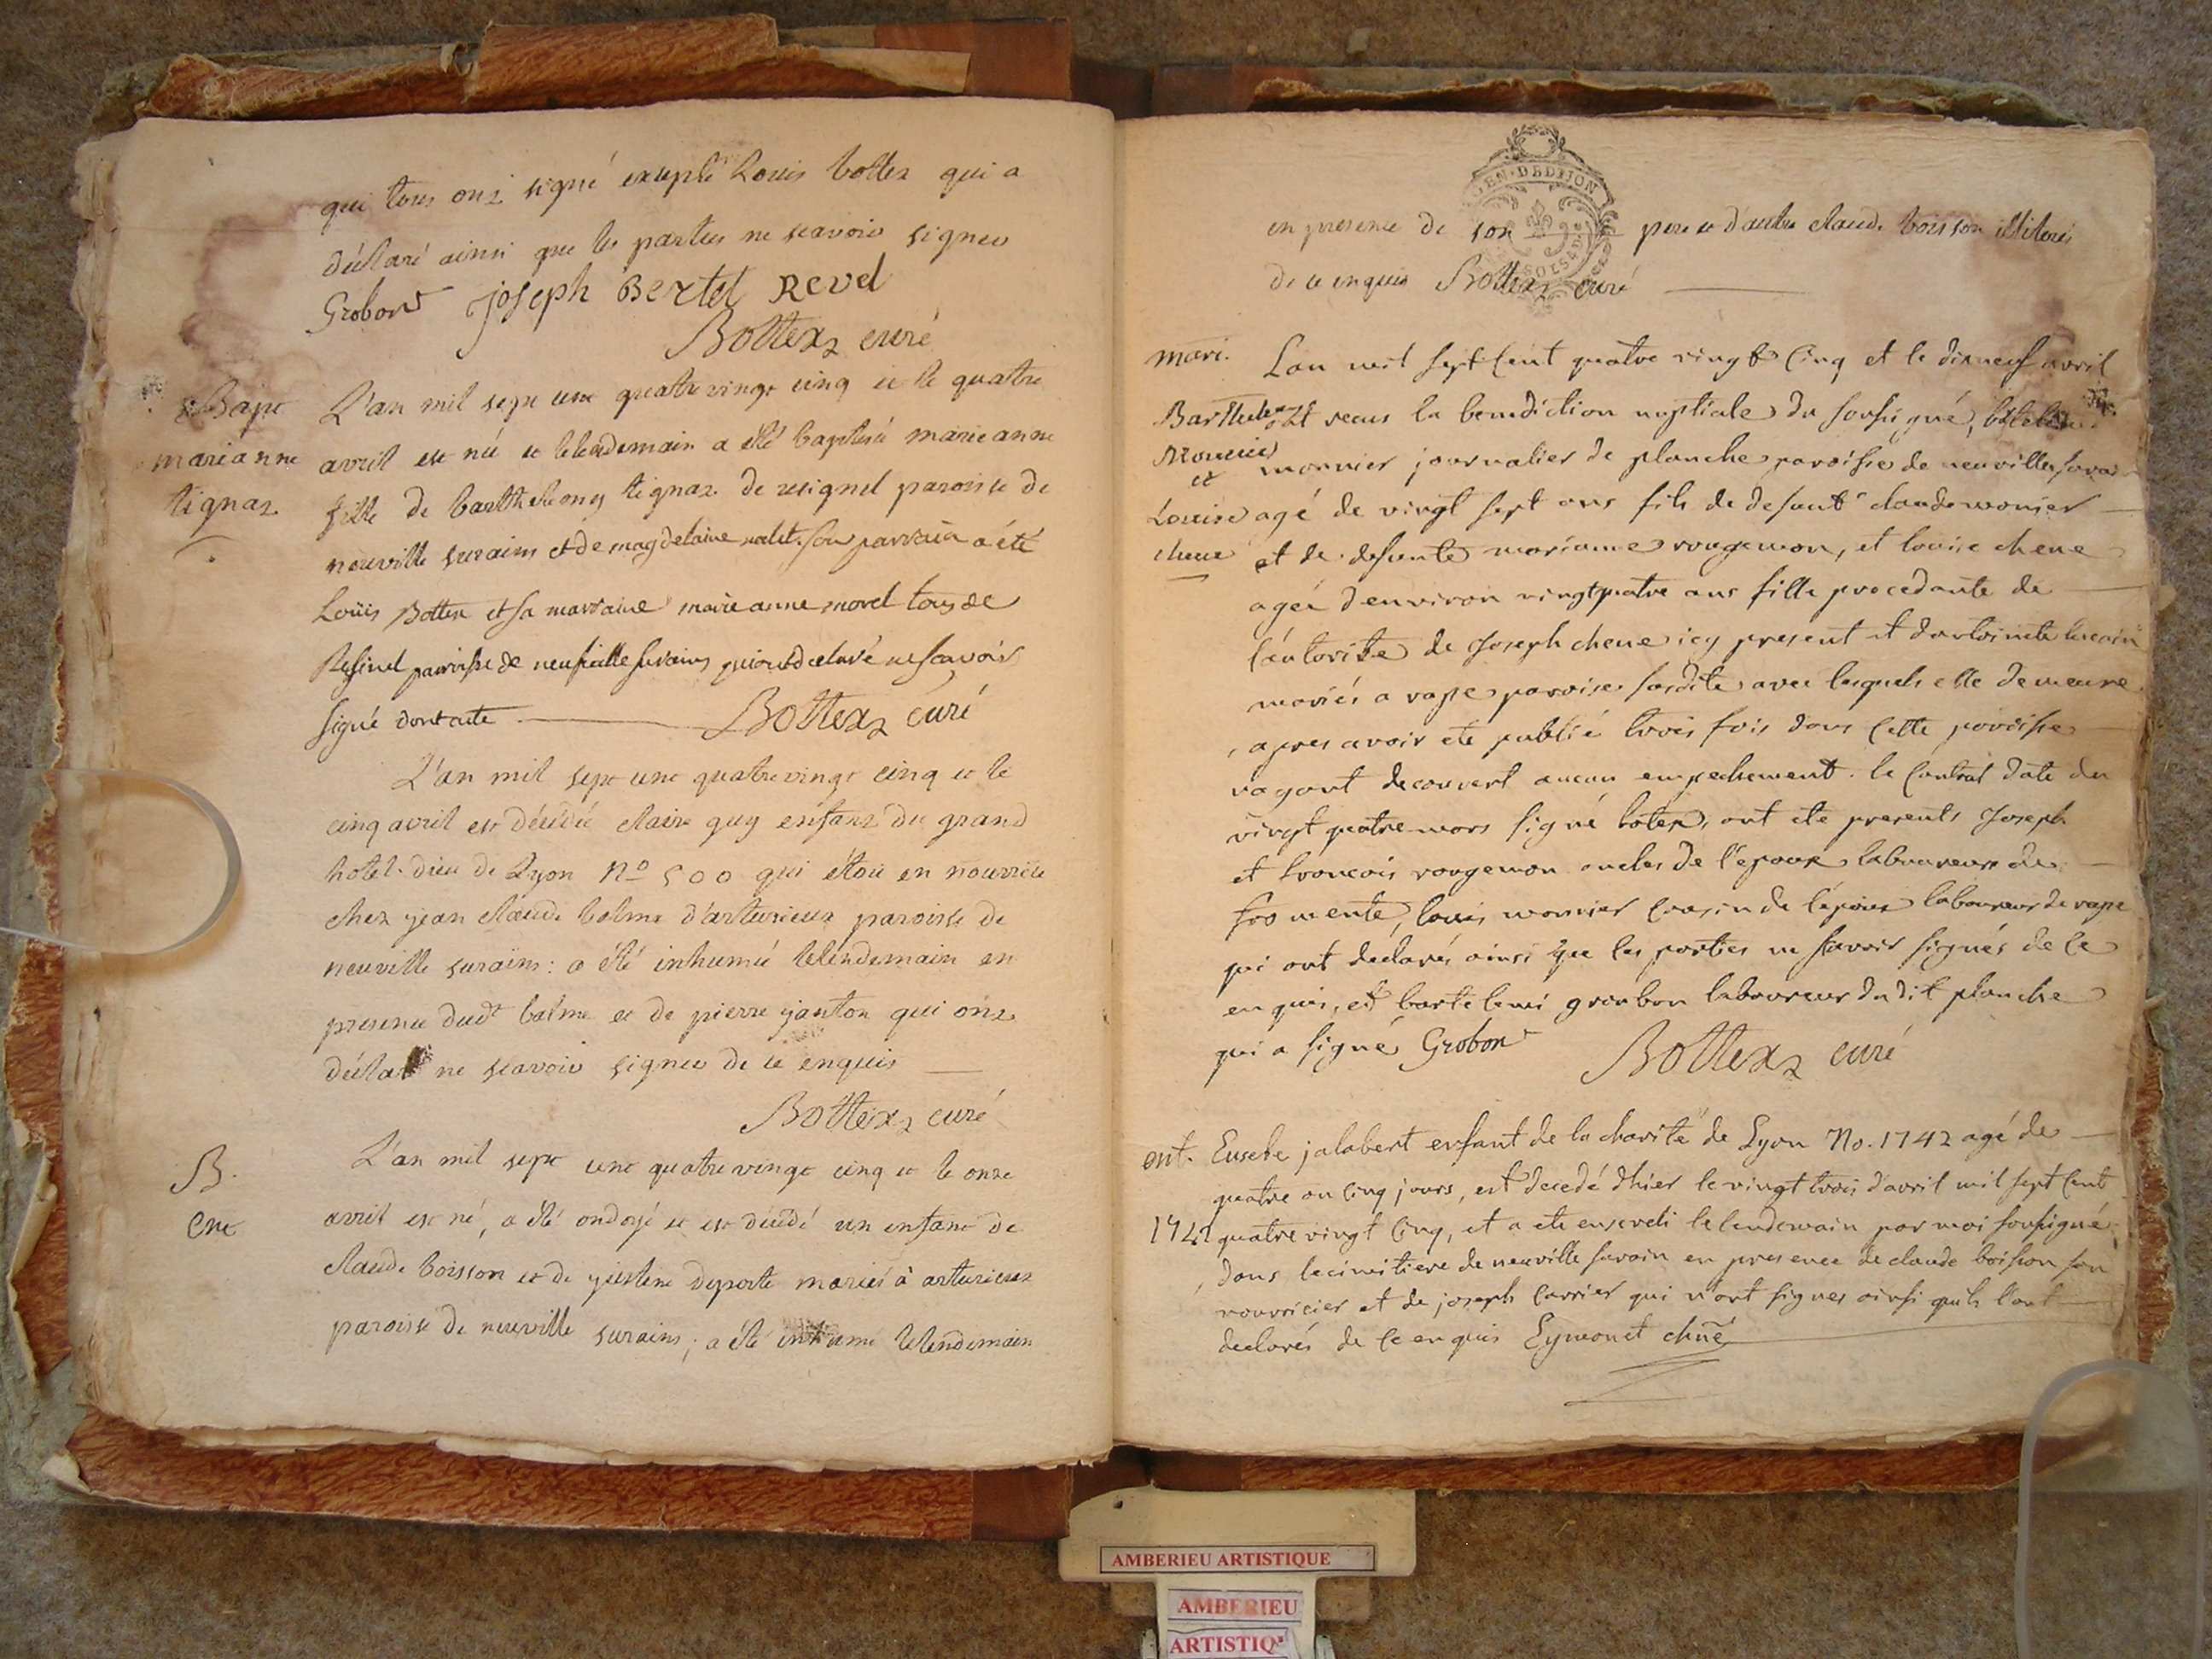 qui tous ont signé excepté Louis bottex qui a
déclaré ainsi que les parties ne scavoir signer
Grobon Joseph Bertet Revel
Bottex curé
Bapt
marianne
tignat
L'an mil sept cent quatre vingt cinq et le quatre
avril est née et le lendemain a été baptisée marie anne
fille de barthelemy tignat de resignel paroisse de
neuville surains et de magdelaine nalet. son parrain a été
Loüis Bottex et sa marraine marie anne morel tous de
Resinel paroisse de neufville surains qui ont declaré ne scavoir
signé dont acte Bottex curé
L'an mil sept cent quatre vingt cinq et le
cinq avril est décédée claire guy enfant du grand
hotel-dieu de Lyon No 500 qui étoit en nourrice
chez jean claude balme d'arturieux paroisse de
neuville surains : a été inhumée le lendemain en
presence dudt balme et de pierre janton qui ont
déclaré ne scavoir signer de ce enquis
Bottex curé
B.
ent
L'an mil sept cent quatre vingt cinq et le onze
avril est né, a été ondoyé et est décédé un enfant de
claude boisson et de justine deporte mariés à arturieux
paroisse de neuville surains ; a été inhumé le lendemain
GEN. DEDIJON
en presence de son pere et d'autre claude boisson illiterés
de ce enquis Bottex curé
mari.
Barthelemi
Monnier
et
Louise
chene
L'an mil sept cent quatre vingt cinq et le dixneuf avril
ont recus la benediction nuptiale du soussigné,
monnier journalier de planche paroisse de neuville surain
agé de vingt sept ans fils de defunt claude monier
et de defunte marianne rougemon, et louise chene
ageé d'environ vingtquatre ans fille procedante de
l'autorité de Joseph chene icy present et d'antoinete
mariés a rape paroise susdite avec lesquels elle demeure
, apres avoir ete publié trois fois dans cette paroisse
n'ayant decouvert aucun empechement. le contrat date du
vingt quatre mars signé botex, ont ete presents Joseph
et francois rougemon oncles de l'epoux laboureurs de
fromente, louis monnier cousin de l'epoux laboureur de rape
qui ont declarés ainsi que les parties ne scavoir signés de ce
enquis, et bartelemi groubon laboureur dudit planche
qui a signé Grobon Bottex curé
ent.
1742
Eusebe jalabert enfant de la charité de Lyon No. 1742 agé de
quatre ou cinq jours, est decedé d'hier le vingt trois d'avril mil sept cent
quatre vingt cinq, et a ete enseveli le lendemain par moi soussigné
dans le cimitiere de neuville surain en presence de claude boisson son
nourricier et de joseph carrier qui n'ont signes ainsi quils l'ont
declarés de ce enquis Eymonet chñe
AMBERIEU ARTISTIQUE
AMBERIEU
ARTISTIQ